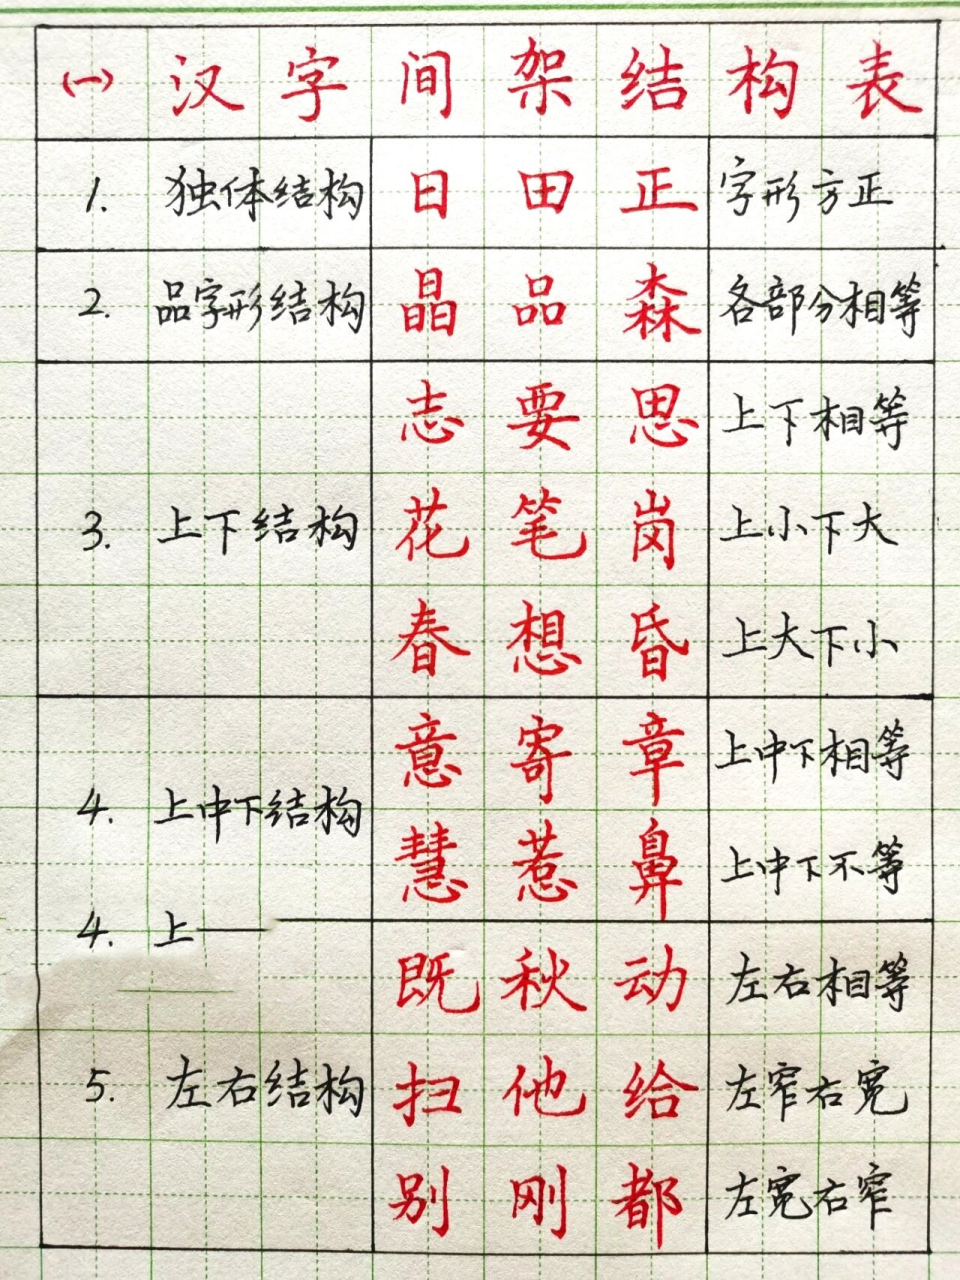 (一) 汉字间架结构表
1. 独体结构 日 田 正 字形方正
2. 品字形结构 晶 品 森 各部分相等
志 要 思 上下相等
3. 上下结构 花 笔 岗 上小下大
春 想 昏 上大下小
意 寄 章 上中下相等
4. 上中下结构
慧 惹 鼻 上中下不等
4. 上一
既 秋 动 左右相等
5. 左右结构 扫 他 给 左窄右宽
别 刚 都 左宽右窄